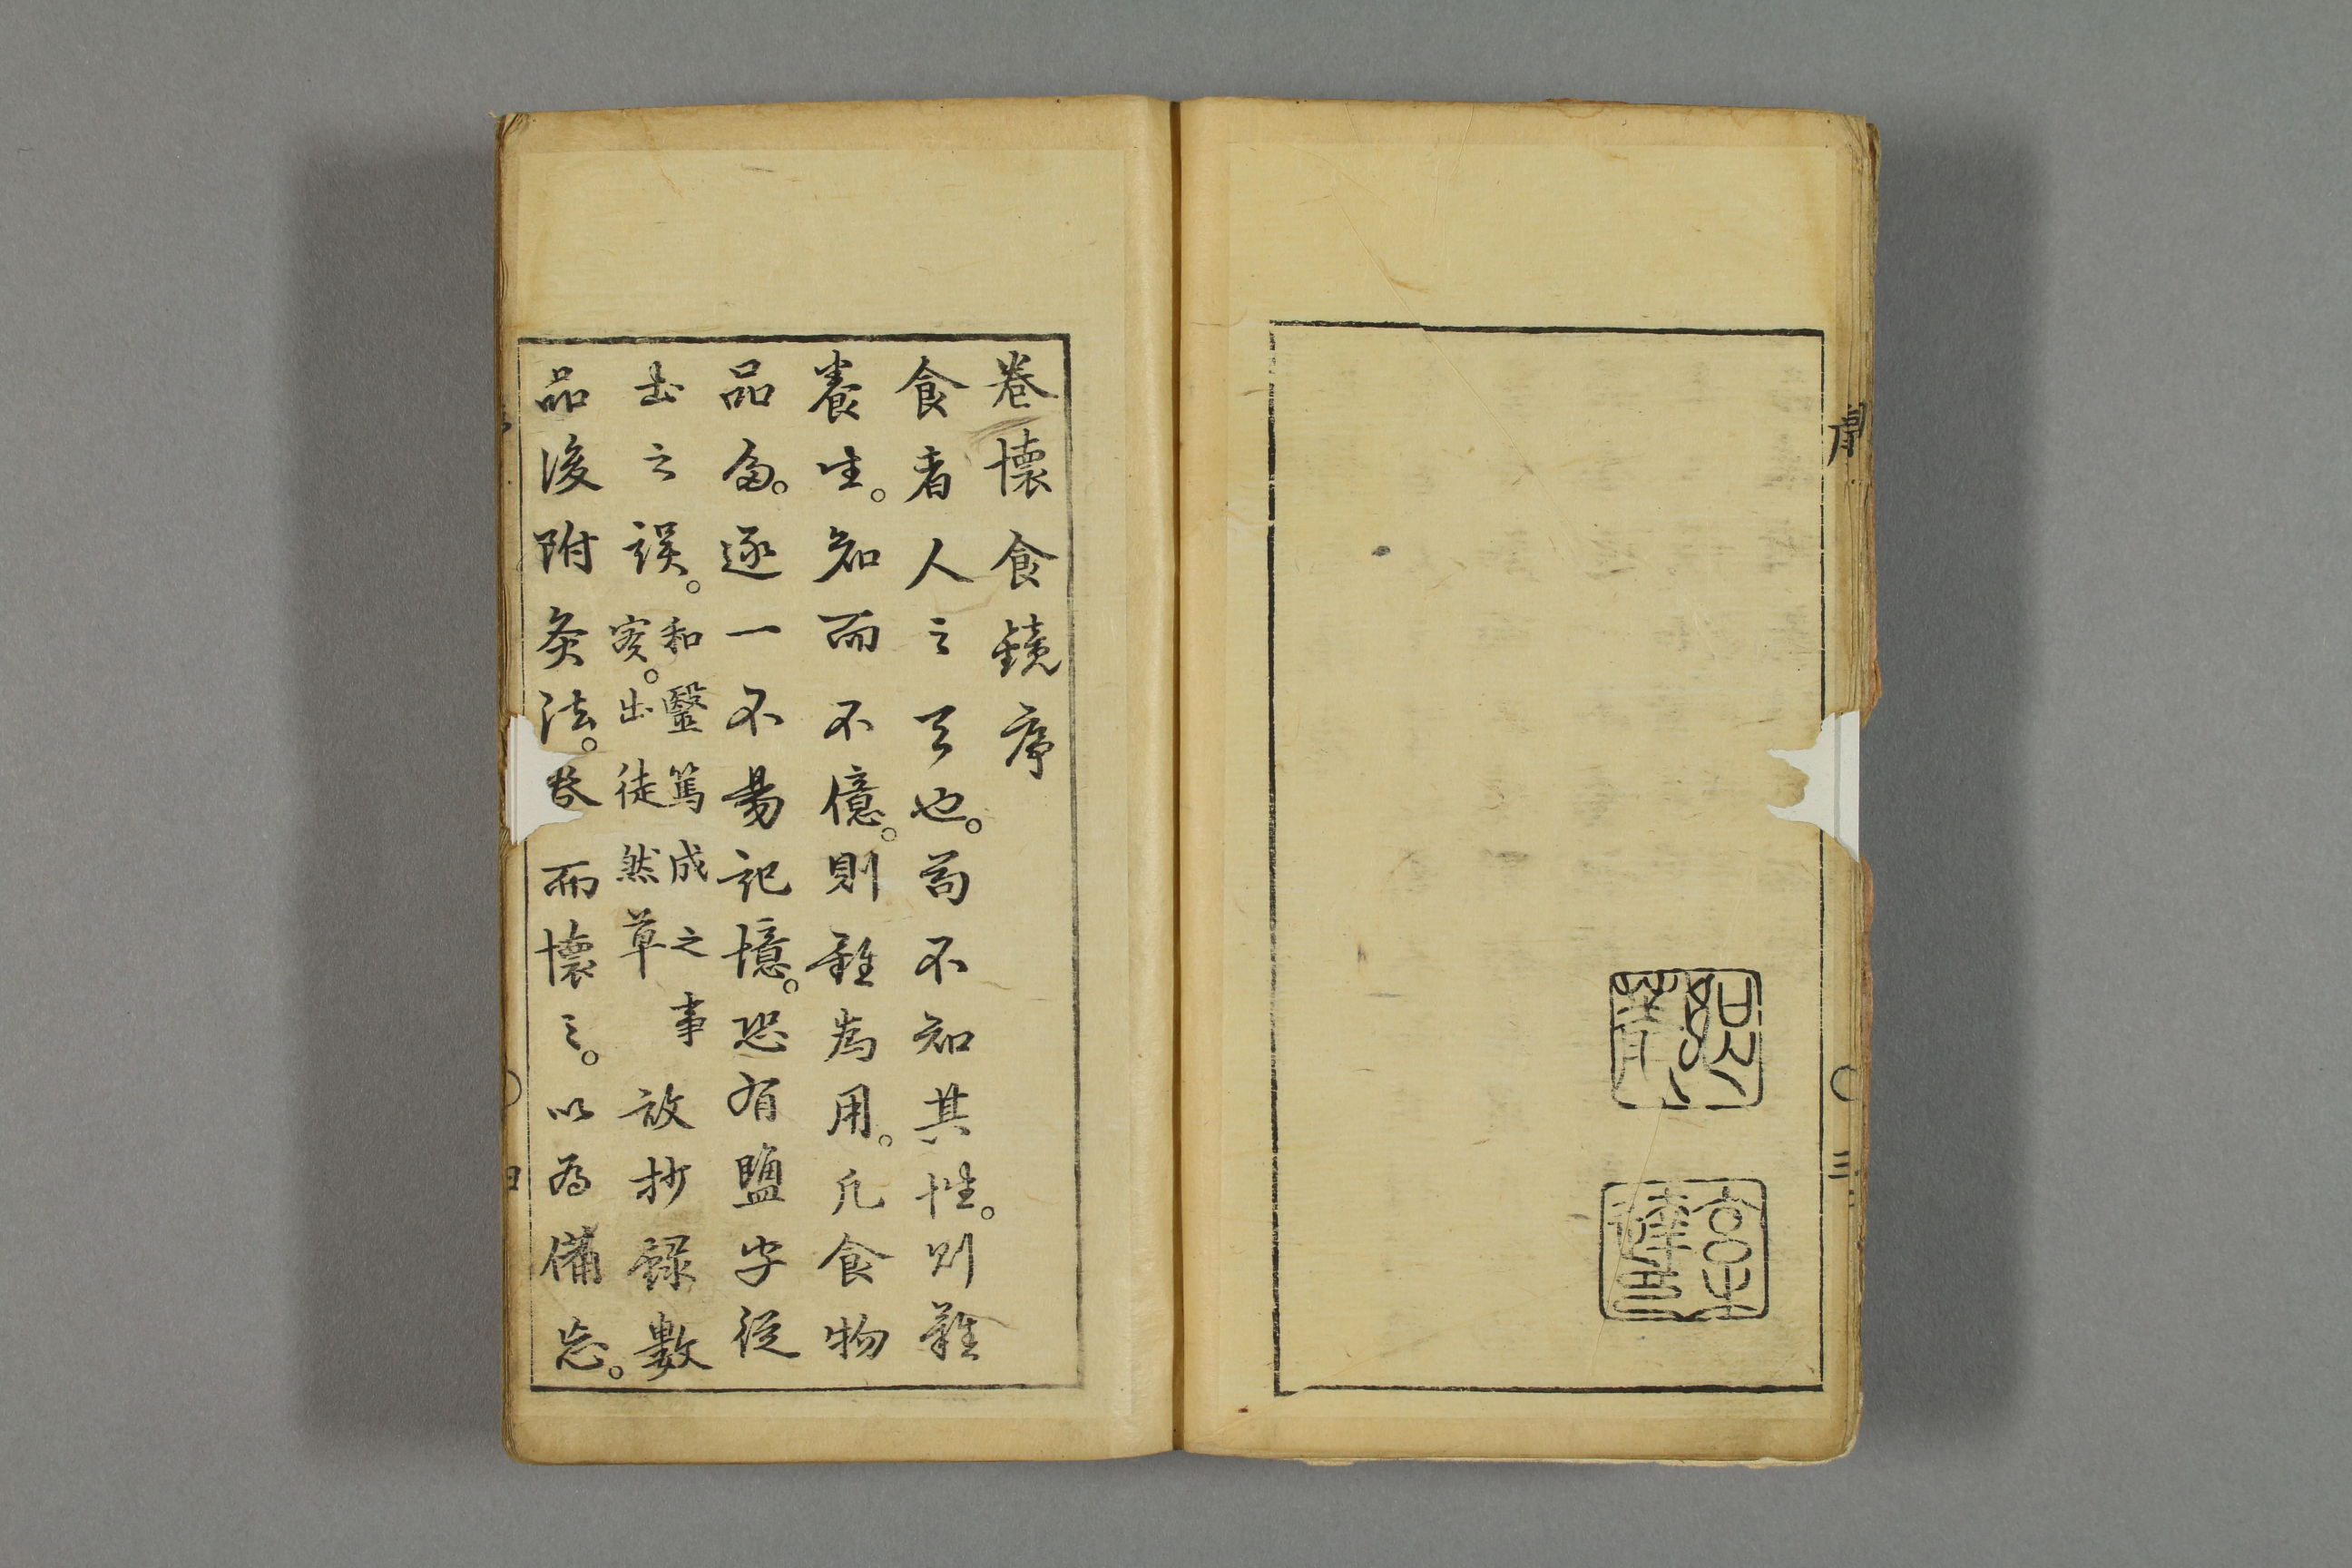 序
三
卷懷食鏡序
食者人之天也。苟不知其性。則難
養生。知而不億。則難為用。凡食物
品多。逐一不易記憶。恐有鹽字從
土之誤。和醫篤成之事
放抄錄數
出徒然草
品後附灸法。卷而懷之。以為備忘。